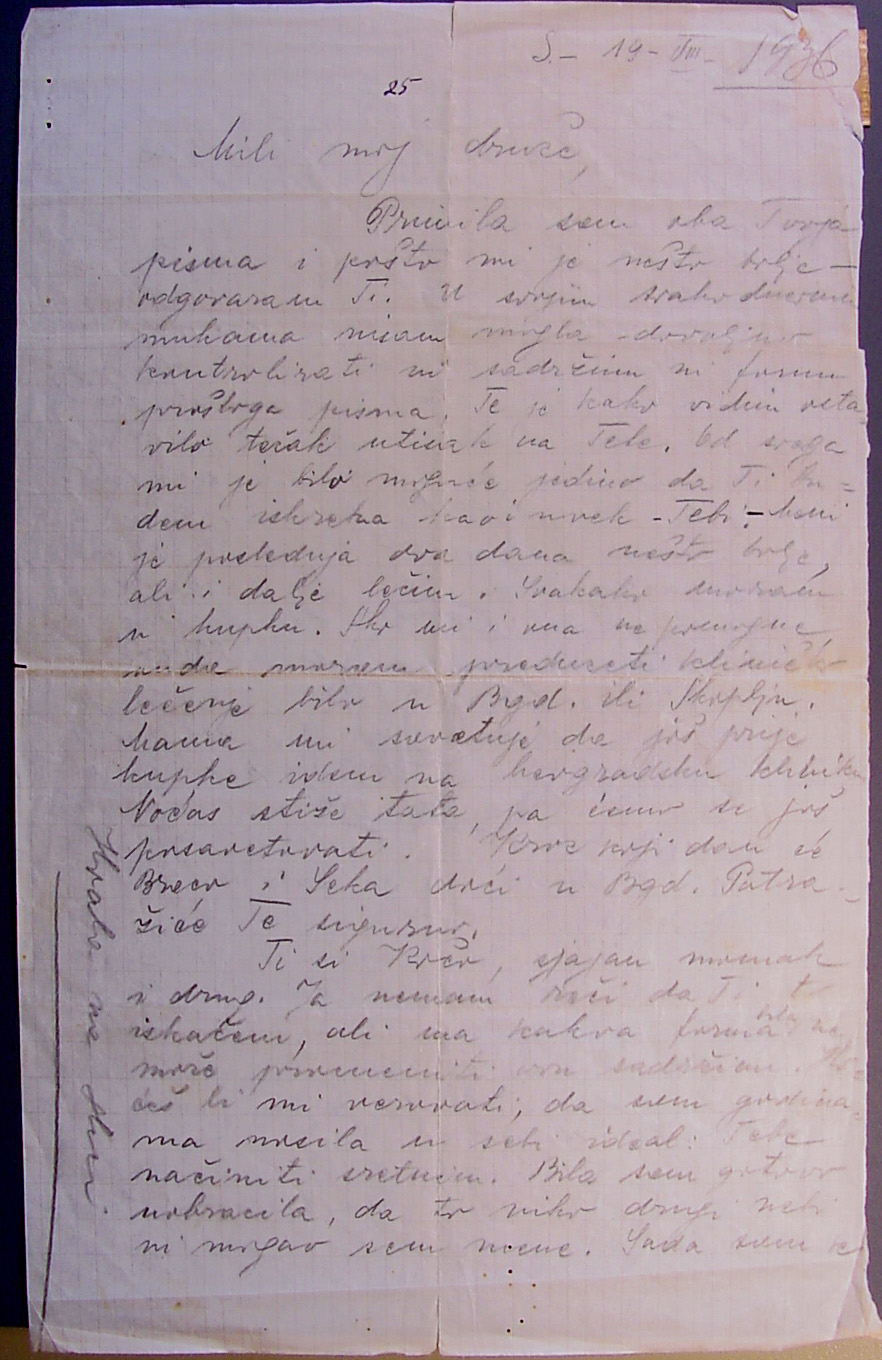 S.- 19- VIII- 1936
25
Mili moj druže,
Primila sam oba Tvoja
pisma i pošto mi je nešto bolje -
odgovaram Ti. U svojim svakodnevnim
mukama nisam mogla dovoljno
kontrolirati ni sadržinu ni formu
prošloga pisma. Te je kako vidim osta-
vilo težak utisak na Tebe. Od svega
mi je bilo moguće jedino da Ti bu=
dem iskrena kao i uvek - Tebi. - Meni
je poslednja dva dana nešto bolje,
ali i dalje ležim. Svakako moram
u kupku. Ako mi i ona ne pomogne,
onda moram preduzeti kliničk
lečenje bilo u Bgd. ili Skoplju.
Mama mi savetuje da još prije
kupke idem na beogradsku kliniku
Noćas stiže tata, pa ćemo se još
posavetovati. Kroz koji dan će
Braco i Seka doći u Bgd. Potra-
žiće Te sigurno.
Ti si Kočo, sjajan momak
i drug. Ja nemam reči da Ti to
iskažem, ali ma kakva forma bila ne
može promeniti ovu sadržinu. Ho=
ćeš li mi verovati, da sam godina-
ma nosila u sebi ideal: Tebe
načiniti sretnim. Bila sam gotovo
uobrazila, da to niko drugi nebi
ni mogao sem mene. Sada sam se
Hvala na